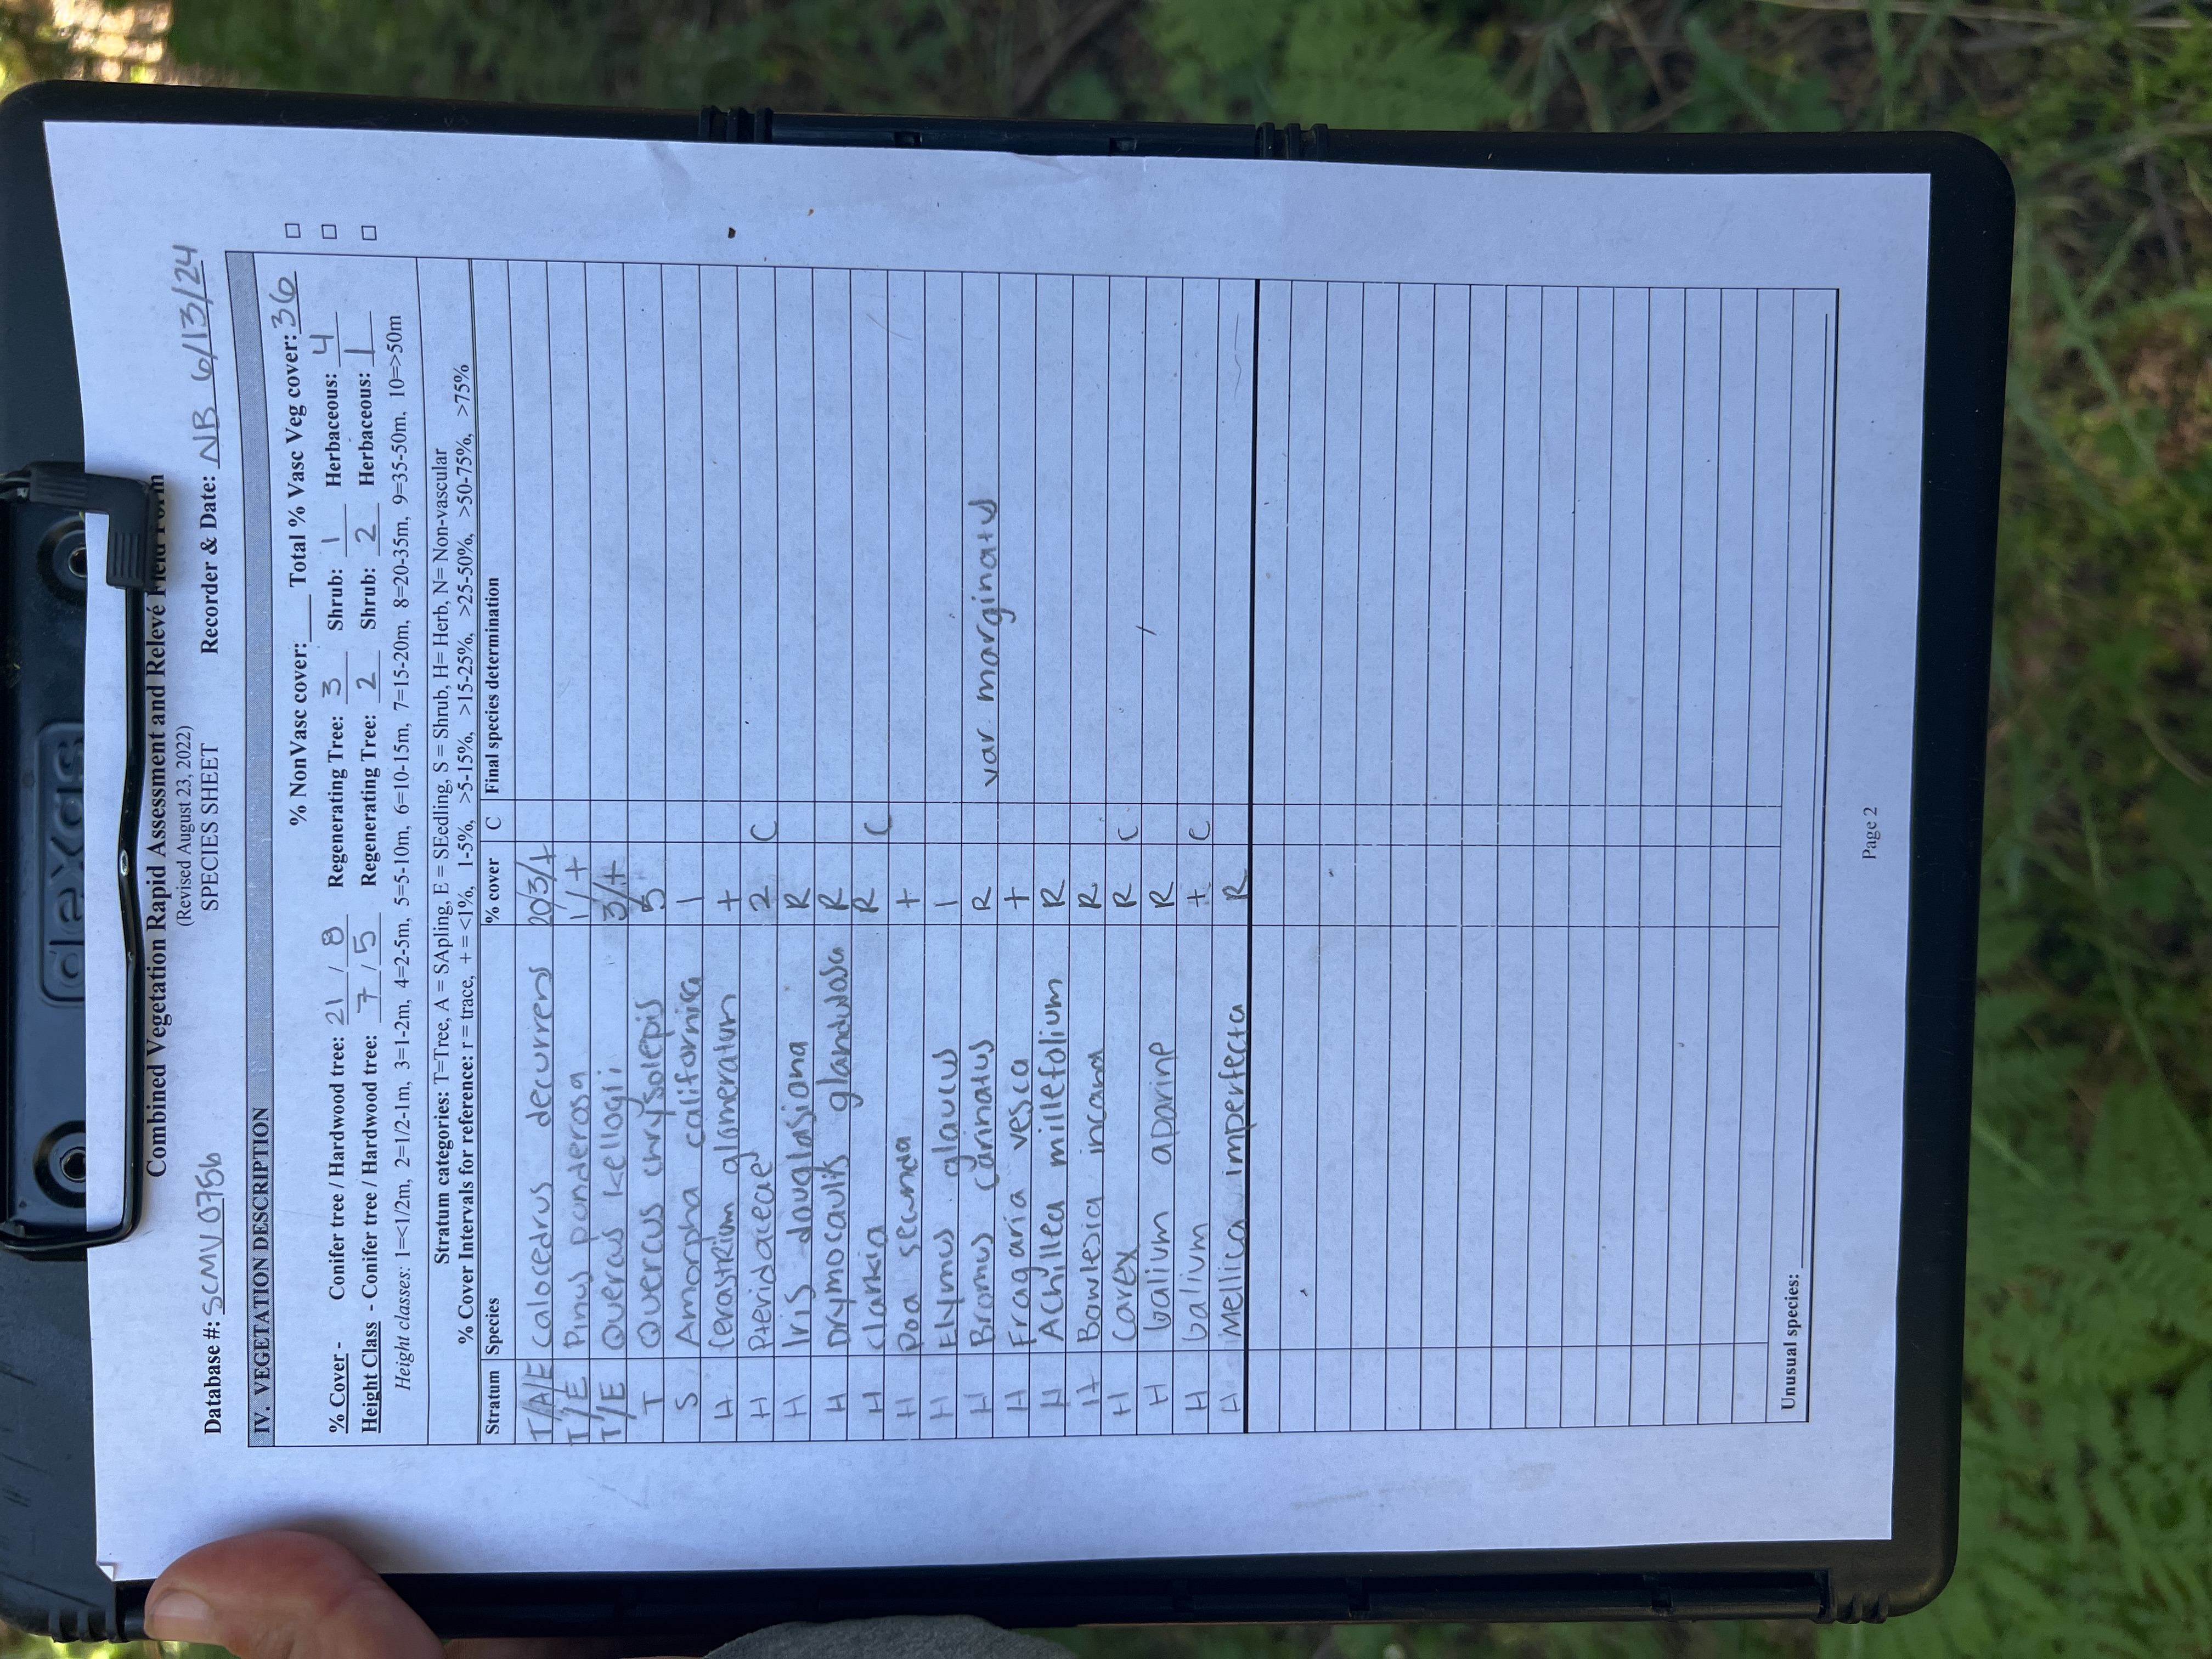 dexas
Combined Vegetation Rapid Assessment and Relevé Field Form
(Revised August 23, 2022)
SPECIES SHEET
Database #: SCMV0756 Recorder & Date: NB 6/13/24
IV. VEGETATION DESCRIPTION
% NonVasc cover: ___ Total % Vasc Veg cover: 36
% Cover - Conifer tree / Hardwood tree: 21 / 8 Regenerating Tree: 3 Shrub: 1 Herbaceous: 4
Height Class - Conifer tree / Hardwood tree: 7 / 5 Regenerating Tree: 2 Shrub: 2 Herbaceous: 1
Height classes: 1=<1/2m, 2=1/2-1m, 3=1-2m, 4=2-5m, 5=5-10m, 6=10-15m, 7=15-20m, 8=20-35m, 9=35-50m, 10=>50m
Stratum categories: T=Tree, A = SApling, E = SEedling, S = Shrub, H= Herb, N= Non-vascular
% Cover Intervals for reference: r = trace, + = <1%, 1-5%, >5-15%, >15-25%, >25-50%, >50-75%, >75%
Stratum Species % cover C Final species determination
T/A/E Calocedrus decurrens 20/3/+
T/E Pinus ponderosa 1/+
T/E Quercus kellogii 3/+
T Quercus chrysolepis 5
S Amorpha californica 1
H Cerastrium glomeratum +
H Pteridaceae 2 C
H Iris douglasiana R
H Drymocaulis glandulosa R
H Clarkia R C
H Poa secunda +
H Elymus glaucus 1
H Bromus carinatus R var marginatus
H Fragaria vesca +
H Achillea millefolium R
H Bowlesia incana R
H Carex R C
H Galium aparine R
H Galium + C
H Mellica imperfecta R
Unusual species:
Page 2